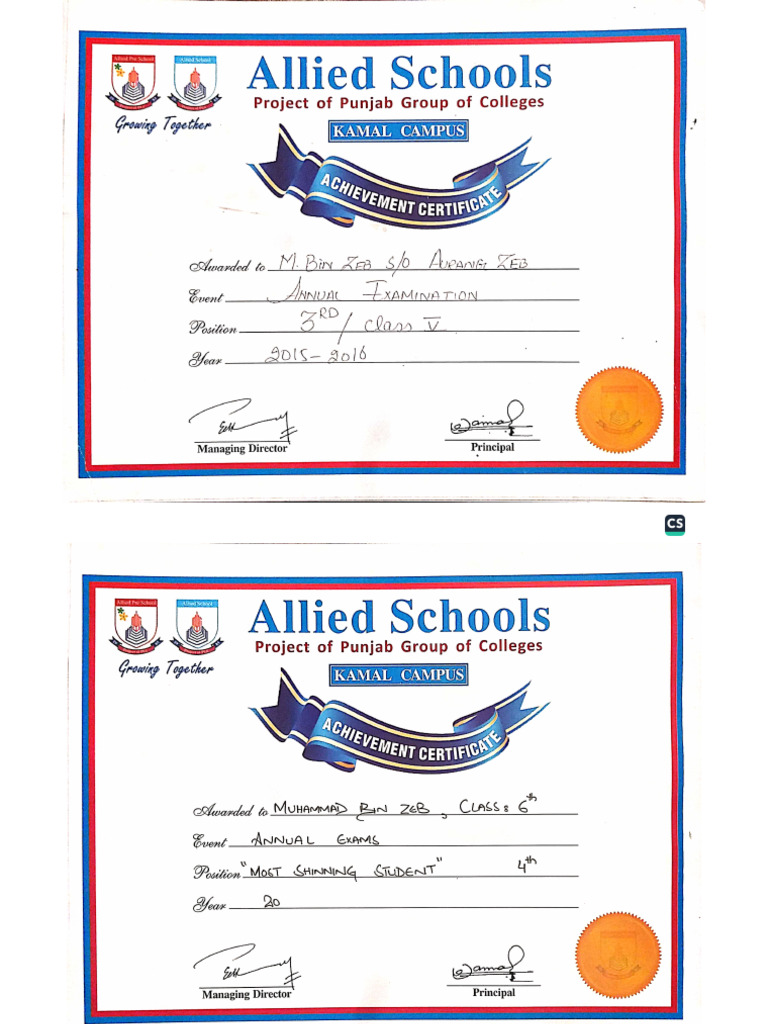 Allied Pre School
Allied School
Growing Together
Allied Schools
Project of Punjab Group of Colleges
KAMAL CAMPUS
ACHIEVEMENT CERTIFICATE
Awarded to M. BIN ZEB S/O AURANG ZEB
Event ANNUAL EXAMINATION
Position 3RD / Class V
Year 2015-2016
Managing Director
Principal
CS
Allied Pre School
Allied School
Growing Together
Allied Schools
Project of Punjab Group of Colleges
KAMAL CAMPUS
ACHIEVEMENT CERTIFICATE
Awarded to MUHAMMAD BIN ZEB, CLASS: 6th
Event ANNUAL EXAMS
Position "MOST SHINNING STUDENT" 4th
Year 20
Managing Director
Principal